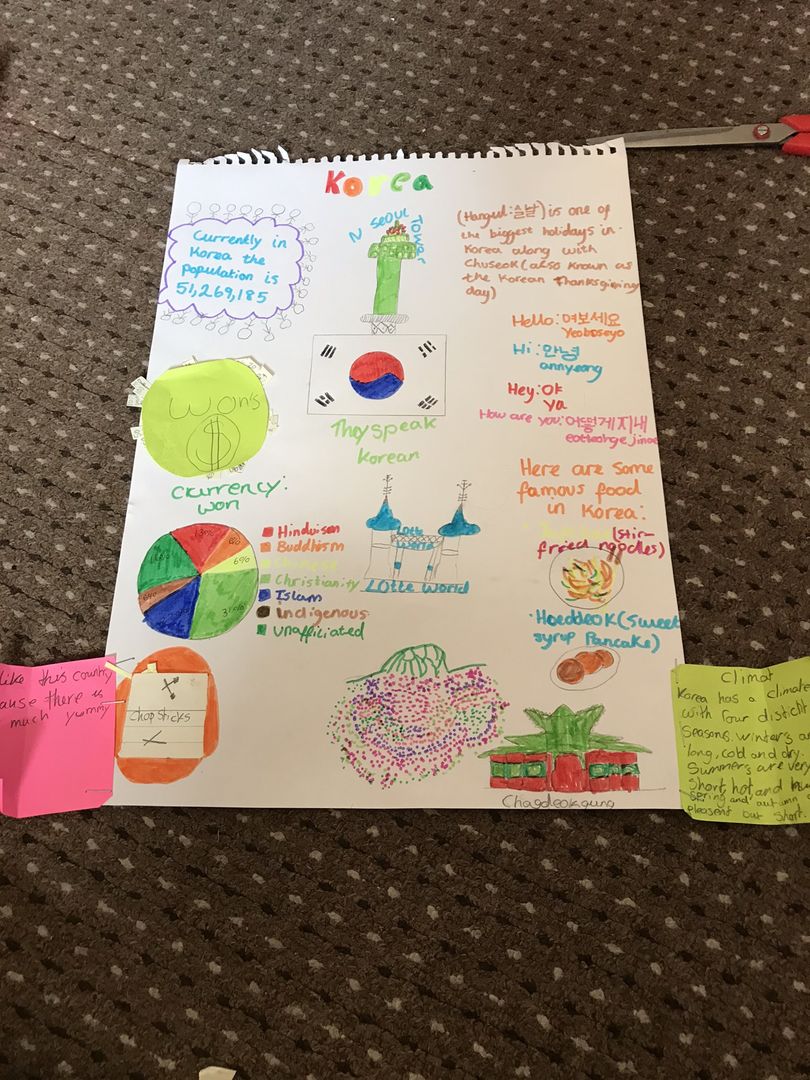 Korea
Currently in
Korea the
population is
51,269,185
N Seoul Tower
(Hangul:슬날) is one of
the biggest holidays in
Korea along with
Chuseok (also known as
the Korean Thanksgiving
day)
Hello: 여보세요
Yeoboseyo
Hi: 안녕
annyeong
Hey: 야
Ya
How are you: 어떻게지내
eotteohge jinae
won's
$
Currency:
won
They speak
Korean
Here are some
famous food
in Korea:
(stir-
fried noodles)
Hoeddeok (sweet
syrup Pancake)
Hinduism
Buddhism
Chinese
Christianity
Islam
indigenous
unafficiated
13%
6%
6%
Lotte
World
Lotte World
like this country
ause there is
much yummy
Chopsticks
Chagdeokgung
Climat
Korea has a climate
with four distictit
seasons. winters ar
long, cold and dry.
Summers are very
short, hot and hu
spring and autumn
pleasent but short.